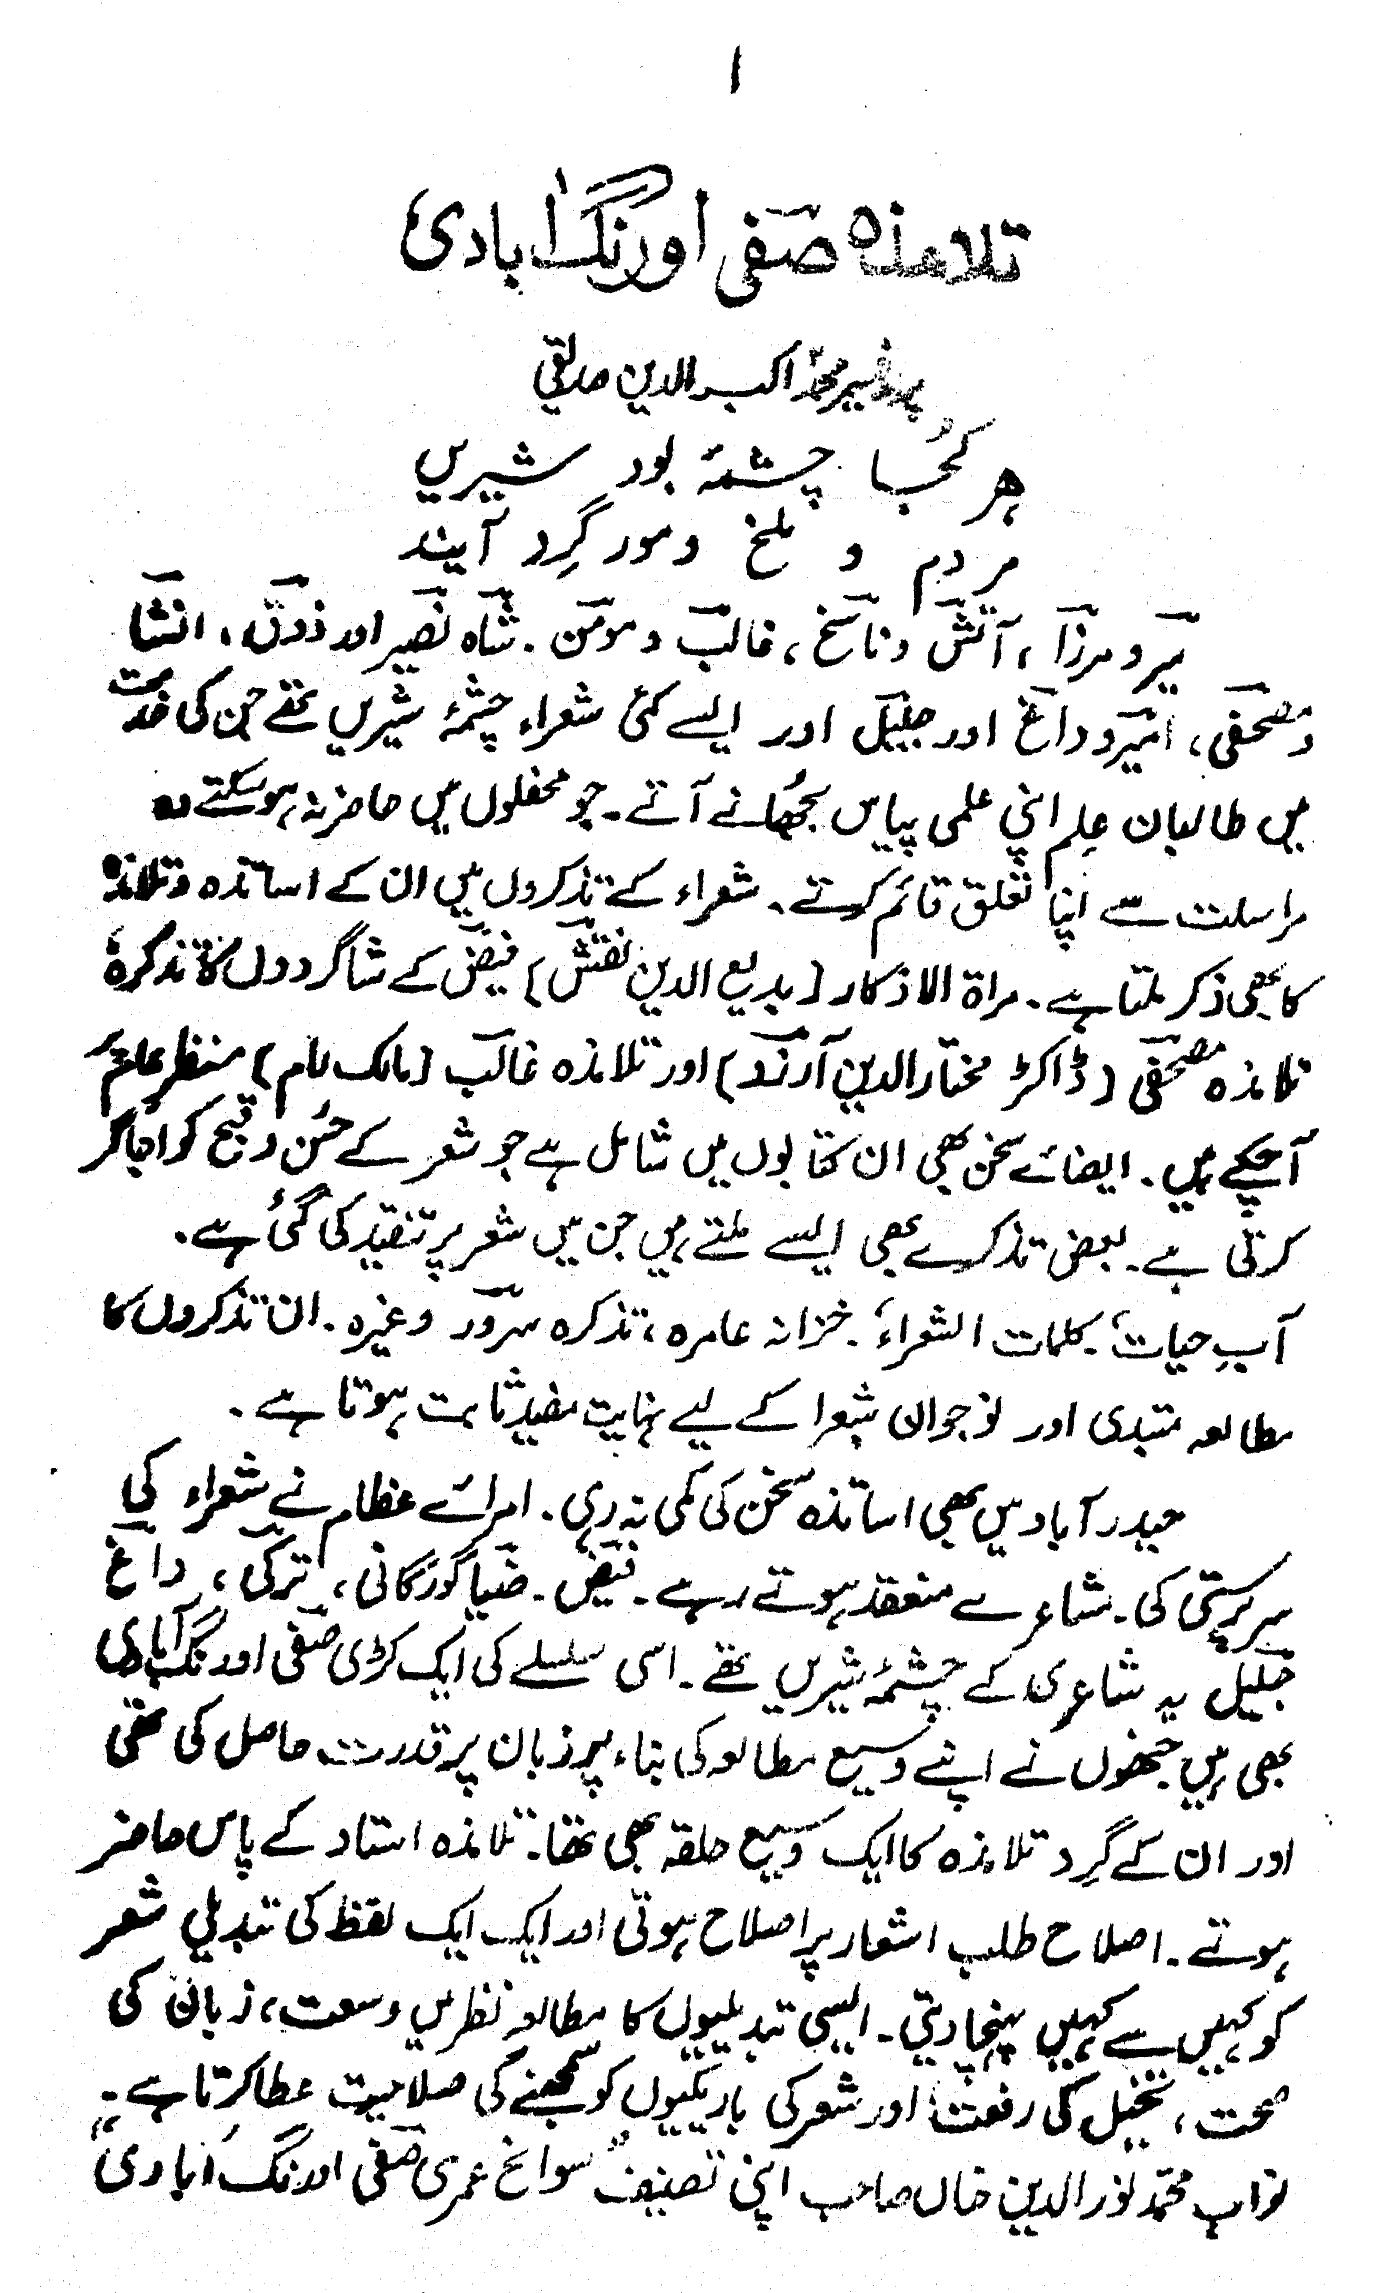 ۱
تلامذہ صفی اورنگ آبادی
پروفیسر محمد اکبر الدین صدیقی
ہر کجُا چشمۂ بود شیریں
مردم و ملخ و مور گِرد آیند
میر و مرزا، آتش و ناسخ، غالب و مومن۔ شاہ نصیر اور ذوق، انشا
و مصحفی، امیر و داغ اور جلیل اور ایسے کئی شعراء چشمۂ شیریں تھے جن کی خدمت
میں طالبان عِلم اپنی علمی پیاس بُجھانے آتے۔ جو محفلوں میں حاضر نہ ہوسکتے وہ
مراسلت سے اپنا تعلق قائم کرتے۔ شعراء کے تذکروں میں ان کے اساتذہ و تلامذہ
کا بھی ذکر ملتا ہے۔ مراۃ الاذکار (بدیع الدین نقش) فیض کے شاگردوں کا تذکرہ
تلامذہ مصحفی (ڈاکٹر مختار الدین آرزو) اور تلامذہ غالب (مالک رام) منظر عام پر
آچکے ہیں۔ ایضائے سخن بھی ان کتابوں میں شامل ہے جو شعر کے حُسن و قبح کو اجاگر
کرتی ہے۔ بعض تذکرے بھی ایسے ملتے ہیں جن میں شعر پر تنقید کی گئی ہے۔
آبِ حیات۔ کلمات الشعراء۔ خزانہ عامرہ، تذکرہ سرور وغیرہ۔ ان تذکروں کا
مطالعہ مبتدی اور نوجوان شعرا کے لیے نہایت مفید ثابت ہوتا ہے۔
حیدرآباد میں بھی اساتذہ سخن کی کمی نہ رہی۔ امرائے عظام نے شعراء کی
سرپرستی کی۔ مشاعرے منعقد ہوتے رہے۔ فیض۔ ضیا گورگانی، ترکی، داغ
جلیل یہ شاعری کے چشمۂ شیریں تھے۔ اسی سلسلے کی ایک کڑی صفی اورنگ آبادی
بھی ہیں جنھوں نے اپنے وسیع مطالعہ کی بناء پر زبان پر قدرت حاصل کی تھی
اور ان کے گِرد تلامذہ کا ایک وسیع حلقہ بھی تھا۔ تلامذہ استاد کے پاس حاضر
ہوتے۔ اصلاح طلب اشعار پر اصلاح ہوتی اور ایک ایک لفظ کی تبدیلی شعر
کو کہیں سے کہیں پہنچا دیتی۔ ایسی تبدیلیوں کا مطالعہ نظر میں وسعت، زبان کی
صحت، تخیل کی رفعت اور شعر کی باریکیوں کو سمجھنے کی صلاحیت عطا کرتا ہے۔
نواب محمّد نور الدین خاں صاحب اپنی تصنیف "سوانح عمری صفی اورنگ آبادی"